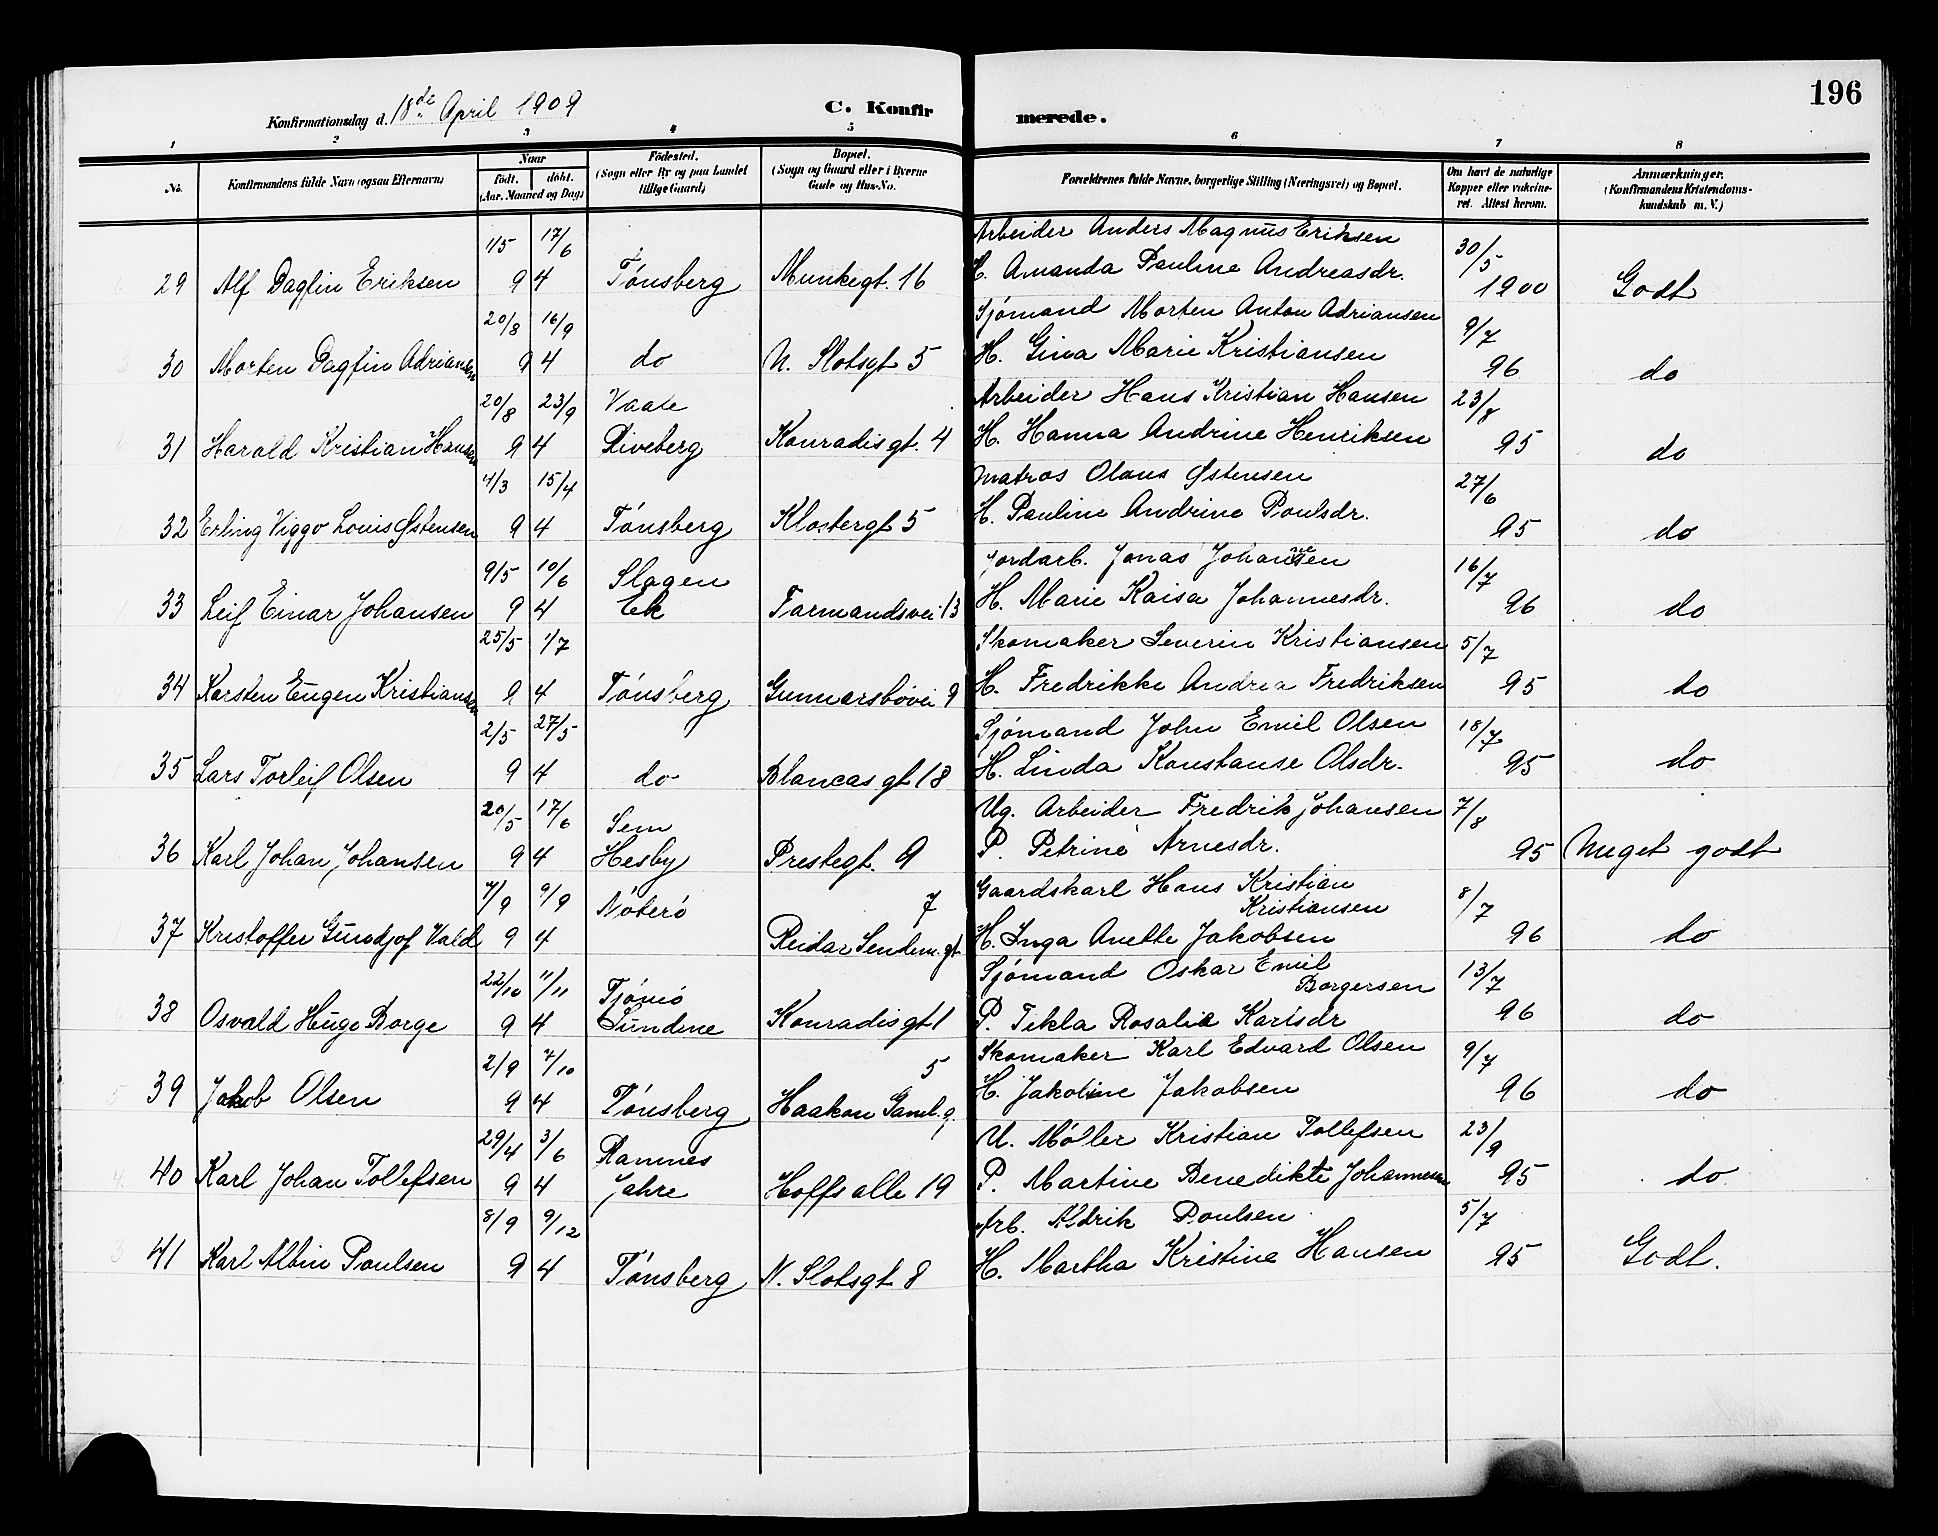 196
Konfirmationsdag d. 18de April 1909 C. Konfirmerede.
1 2 3 4 5 6 7 8
No. Konfirmandens fulde Navn (ogsaa Efternavn) Naar født. døbt. (Aar, Maaned og Dag) Fødested. (Sogn eller By og paa Landet tillige Gaard) Bopæl. (Sogn og Gaard eller i Byerne Gade og Hus-No. Forældrenes fulde Navne, borgerlige Stilling (Næringsvei) og Bopæl. Om havt de naturlige Kopper eller vakcineret. Attest herom. Anmærkninger. (Konfirmandens Kristendomskundskab m. V.)
1/5 17/6 Arbeider Anders Magnus Eriksen 30/5
29 Alf Dagfin Eriksen 94 Tønsberg Munkegt. 16 H. Amanda Pauline Andreasdr. 1900 Godt
20/8 16/9 Sjømand Morten Anton Adriansen 9/7
30 Morten Dagfin Adriansen 94 do N. Slotsgt 5 H. Gina Marie Kristiansen 96 do
20/8 23/9 Vaale Arbeider Hans Kristian Hansen 23/8
31 Harald Kristian Hansen 94 Riveberg Konradisgt. 4 H. Hanna Andrine Henriksen 95 do
4/3 15/4 Matros Olaus Østensen 27/6
32 Erling Viggo Louis Østensen 94 Tønsberg Klostergt 5 H. Pauline Andrine Poulsdr. 95 do
9/5 10/6 Slagen Jordarb. Jonas Johansen 16/7
33 Leif Einar Johansen 94 Ek Farmandsvei 13 H. Marie Kaisa Johannesdr. 96 do
25/5 1/7 Skomaker Severin Kristiansen 5/7
34 Karsten Eugen Kristiansen 94 Tønsberg Gunnarsbøvei 9 H. Fredrikke Andrea Fredriksen 95 do
2/5 27/5 Sjømand John Emil Olsen 18/7
35 Lars Torleif Olsen 94 do Blancasgt 18 H. Linda Konstanse Olsdr. 95 do
20/5 17/6 Sem Ug. Arbeider Fredrik Johansen 7/8
36 Karl Johan Johansen 94 Hesby Prestegt. 9 P. Petrine Arnesdr. 95 Meget godt
7/9 9/9 Nøterø 7 Gaardskarl Hans Kristian Kristiansen 8/7
37 Kristoffer Gundjof Vald 94 Reidar Sendem. gt H. Inga Anette Jakobsen 96 do
22/10 11/11 Tjømø Sjømand Oskar Emil Borgersen 13/7
38 Osvald Huge Borge 94 Sundene Konradisgt 1 P. Tekla Rosalie Karlsdr 96 do
2/9 7/10 5 Skomaker Karl Edvard Olsen 9/7
39 Jakob Olsen 94 Tønsberg Haakon Gaml. g. H. Jakoline Jakobsen 96 do
29/4 3/6 Ramnes U. Møller Kristian Tollefsen 23/9
40 Karl Johan Tollefsen 94 Jahre Hoffs alle 19 P. Martine Benedikte Johannesen 95 do
8/9 9/12 Arb. Aldrik Poulsen 5/7
41 Karl Albin Poulsen 94 Tønsberg N. Slotsgt 8 H. Martha Kristine Hansen 95 Godt.